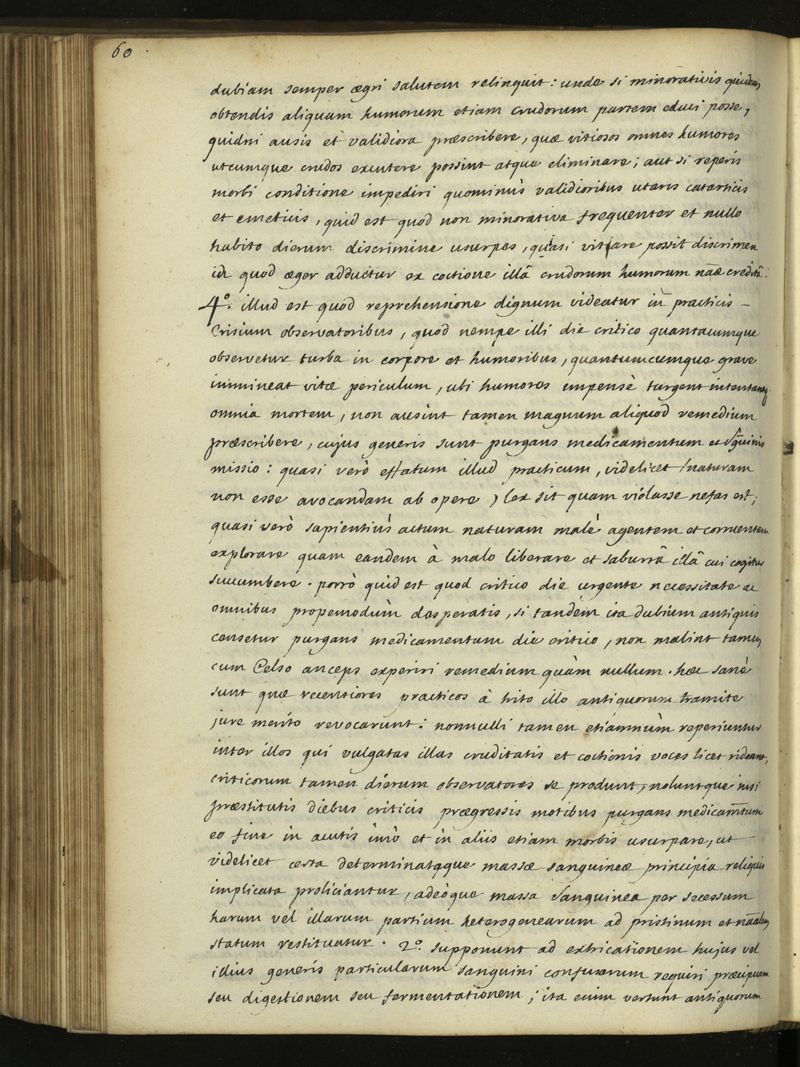 60
dubiam semper ægri salutem relinquit: unde si minorativis quidem
obtendis aliquam humorum etiam crudorum partem educi posse,
quidni ausis et validiora præscribere, quæ vitiosos omnes humores
utcumque crudos excutere possint atque eliminare; aut si reperis
morbi conditione impediri quominùs validioribus utaris catarticis
et emeticis, quid est quod non minorativa frequenter et nullo
habito dierum discrimine usurpes, quasi vitare possit discrimen
id quod æger adducitur ex coctione illâ crudorum humorum
4º. illud est quod reprehensione dignum videatur in practicis
Crisium observatoribus, quod nempe illi die critico quantacumque
observetur turba in corpore et humoribus, quantumcumque grave
immineat vitæ periculum, ubi humores impensè turgent
omnia mortem, non ausint tamen magnum aliquod remedium
præscribere, cujus generis sunt purgans medicamentum et sguinis
missio: quasi verò effatum illud practicum, videlicet (naturam
non esse avocandam ab opere) lex sit quam violasse nefas est;
quasi verò sapientiùs actum naturam malè agentem et corruentem
explorare quam eandem à malo liberare et saburrâ illâ cui cogitur
succumbere. porrò quid est quod critico die urgente necessitate ac
omnibus propemodùm desperatis, si tandem ita dubium antiquis
censetur purgans medicamentum die critico, non malint tamen
cum Celso anceps experiri remedium quàm nullum. hæc sanè
sunt quæ recentiores practicos à trito illo antiquorum tramite
jure merito revocarunt: nonnulli tamen etiamnùm reperiuntur
inter illos qui vulgatas illas cruditatis et coctionis voces licet rideant,
criticorum tamen dierum observatores se produnt, noluntque nisi
præstitutis diebus criticis prægressis motibus purgans medicamtum
eo fine in acutis imò et in aliis etiam morbis usurpare, ut
videlicet certa determinataque massæ sanguineæ principia reliquis
implicata proliciantur, adeòque massa sanguinea per secessum
harum vel illarum partium heterogenearum ad pristinum et nãalem
statum restituatur. 2º. supponunt ad extricationem hujus vel
illius generis particularum sanguini confusarum requiri præcipuam
seu digestionem seu fermentationem; ita enim vertunt antiquorum